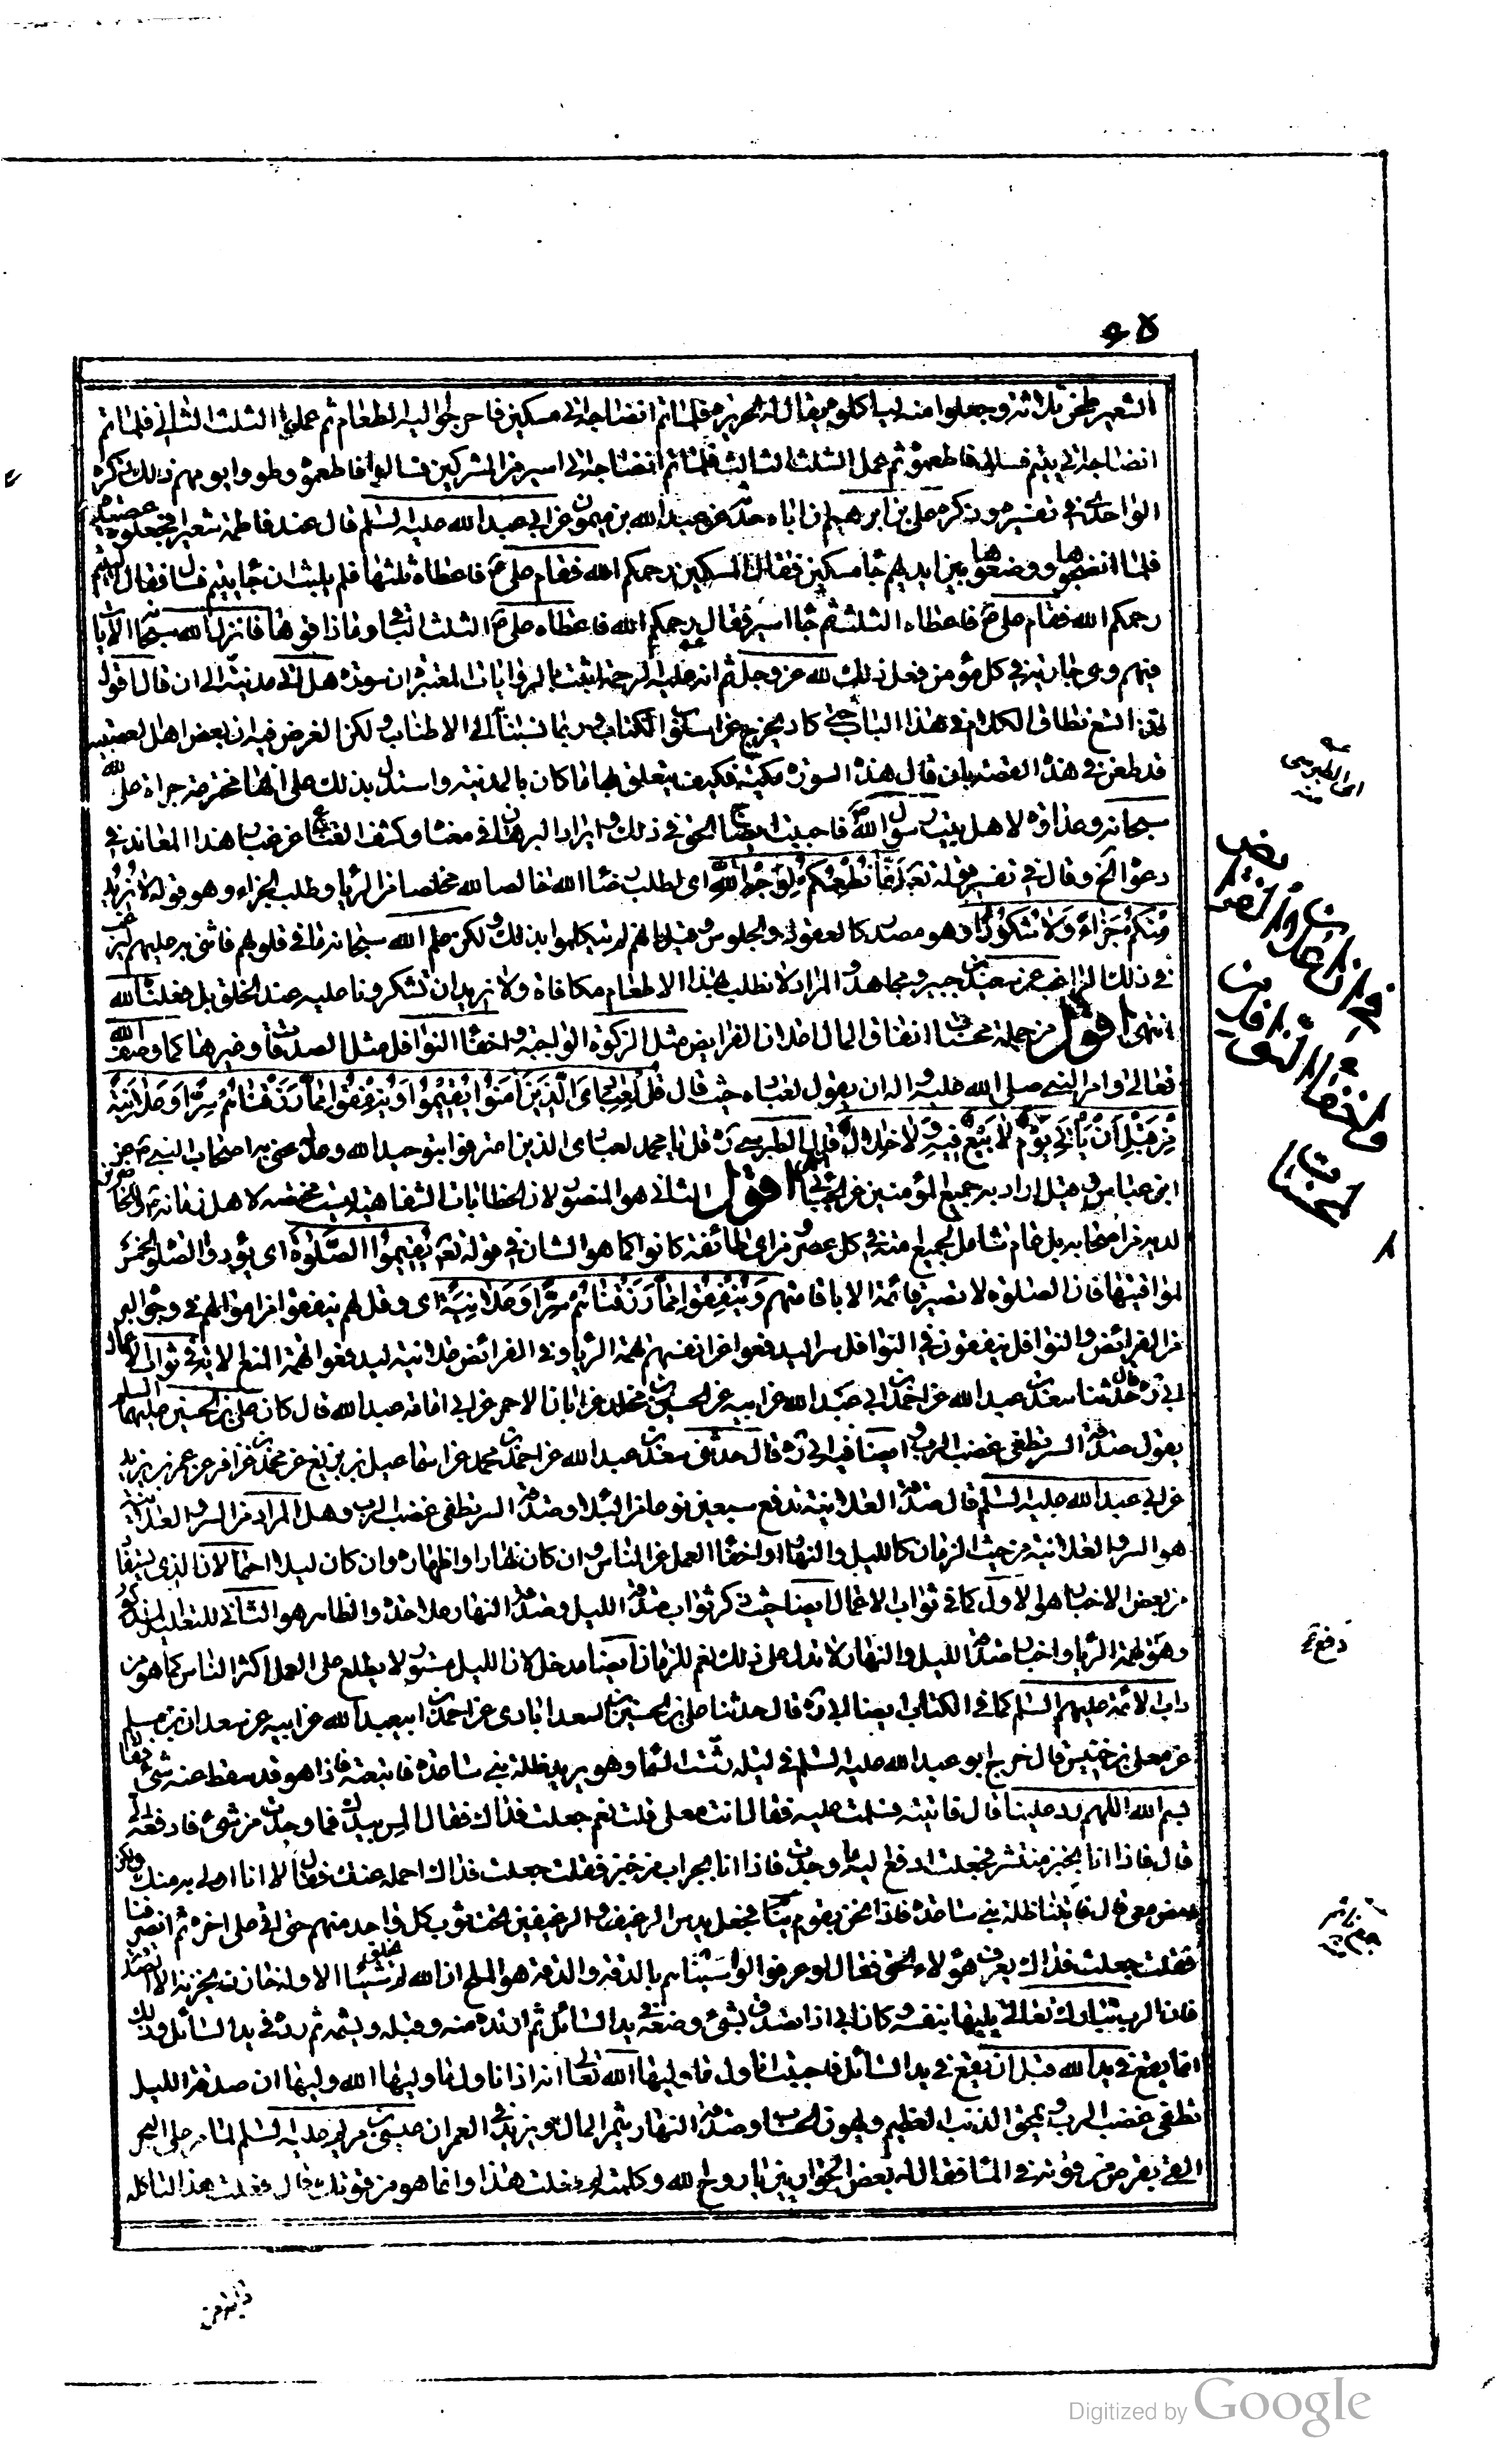 ٥٩
الشعير فطحن ثلثه وجعلوا منه شيا ياكلوه يقال له الحريره فلما تم انضاجه اتى مسكين فاخرجوا اليه الطعام ثم عمل الثلث الثاني فلما تم
انضاجه اتى يتيم فسال فاطعموه ثم عمل الثلث الثالث فلما تم انضاجه اتى اسير من المشركين فسال فاطعموه وطووا يومهم ذلك ذكره
الواحدي في تفسيره وذكره علي بن ابرهيم ان اباه حدثه عن عبدالله بن ميمون عن ابي عبدالله عليه السلم قال كان عند فاطمة شعير فجعلوه عصيدة
فلما انضجوها ووضعوها بين ايديهم جاء مسكين فقال المسكين رحمكم الله فقام علي ع فاعطاه ثلثها فلم يلبث ان جاء يتيم فقال اليتيم
رحمكم الله فقام علي ع فاعطاه الثلث ثم جاء اسير فقال رحمكم الله فاعطاه علي ع الثلث الباقي وما ذاقوها فانزل الله سبحانه الايات
فيهم وهي جارية في كل مؤمن فعل ذلك لله عز وجل ثم انه عليه الرحمة اثبت بالروايات المعتبرة ان سورة هل اتى مدنية الى ان قال اقول
قد اتسع نطاق الكلام في هذا الباب حتى كاد يخرج عن اسلوب الكتاب وربما نسبنا الى الاطناب ولكن الغرض فيه ان بعض اهل العصبية
قد طعن في هذه القصة بان قال هذه السورة مكية فكيف يتعلق بها ما كان بالمدينة واستدل بذلك على انها مخترعة جراة على الله
سبحانه وعداوة لاهل بيت رسول الله ص فاحببت ايضاح الحق في ذلك وايراد البرهان في معناه وكشف القناع عن هذا المعاند في
دعواه الخ وقال في تفسير قوله تعه اِنَّمَا نُطْعِمُكُمْ لِوَجْهِ اللهِ اى لطلب رضاء الله خالصا لله مخلصا من الريا وطلب الجزاء وهو قوله لاَ نُرِيدُ
مِنْكُمْ جَزَاءً وَلاَ شُكُورًا وهو مصدر كالقعود والجلوس وقيل انهم لم يتكلموا بذلك ولكن علم الله سبحانه ما في قلوبهم فاثنى به عليهم ليرغب
في ذلك الراغب عن سعيد بن جبير ومجاهد المراد لا نطلب بهذا الاطعام مكافاة ولا نريد ان تشكرونا عليه عند الخلق بل فعلناه لله
انتهى اقول من جملة انفاق المال اعلان الفرايض مثل الزكوة الواجبة واخفاء النوافل مثل الصدقات وغيرها كما وصف الله
تعالى وامر النبي صلى الله عليه واله ان يقول لعباده حيث قال قُلْ لِعِبَادِىَ الَّذِينَ آمَنُوا يُقِيمُوا الصَّلٰوةَ وَيُنْفِقُوا مِمَّا رَزَقْنَاهُمْ سِرًّا وَعَلاَنِيَةً
مِنْ قَبْلِ اَنْ يَأْتِىَ يَوْمٌ لاَ بَيْعٌ فِيهِ وَلاَ خِلاَلٌ قال الطبرسي ره قل يا محمد لعبادى الذين اعترفوا بتوحيد الله وعدله يعنى به اصحاب النبي ص عن
ابن عباس وقيل اراد به جميع المؤمنين عن الجبائي اقول الثاني هو المنصور لان الخطابات الشفاهية ليست مختصه لاهل زمانه والحاضرين
لديه من اصحابه بل عام شامل لجميع امته في كل عصر من اى طائفه كانوا كما هو الشان في قوله تعه يُقِيمُوا الصَّلٰوةَ اى يؤدوا الصلوة الخمس
لمواقيتها فان الصلوة لا تصير قائمة الا باقامتهم وَيُنْفِقُوا مِمَّا رَزَقْنَاهُمْ سِرًّا وَعَلاَنِيَةً اى وقل لهم ينفقوا من اموالهم في وجوه البر
من الفرائض والنوافل ينفقون في النوافل سرا ليدفعوا عن انفسهم تهمة الريا وفي الفرائض علانية ليدفعوا تهمة المنع الاية في ثواب الاعمال
ابي ره قال حدثنا سعد بن عبدالله عن احمد بن ابي عبدالله عن ابيه عن الحسين بن مخلد عن ابان الاحمر عن ابي امامة عبدالله قال كان علي بن الحسين عليهما السلم
يقول صدقة السر تطفى غضب الرب ايضا فيه ابي ره قال حدثني سعد بن عبدالله عن احمد بن محمد عن اسماعيل بن بزيع عن محمد بن عذافر عن عمر بن يزيد
عن ابي عبدالله عليه السلم قال صدقة العلانية تدفع سبعين نوعا من البلاء وصدقة السر تطفى غضب الرب وهل المراد من السر والعلانية
هو السر والعلانية من حيث الزمان كالليل والنهار او اخفاء العمل عن الناس وان كان نهارا واظهاره وان كان ليلا احتمالان الذي يستفاد
من بعض الاخبار هو الاول كما في ثواب الاعمال ايضا حيث ذكر ثواب صدقة الليل وصدقة النهار على حدة والظاهر هو الثاني للتعليل المذكور
وهو تهمة الريا واخبار صدقة الليل والنهار لا تدل على ذلك نعم للزمان ايضا مدخل لان الليل مستور لا يطلع على العمل اكثر الناس كما هو من
داب الائمة عليهم السلم كما في الكتاب ايضا ابي ره قال حدثنا علي بن الحسين السعدابادى عن احمد بن ابيعبدالله عن ابيه عن سعدان بن مسلم
عن معلى بن خنيس قال خرج ابو عبدالله عليه السلم في ليلة رشت السماء وهو يريد ظلة بني ساعدة فاتبعته فاذا هو قد سقط عنه شئ فقال
بسم الله اللهم رد علينا قال فاتيته فسلمت عليه فقال انت معلى قلت نعم جعلت فداك فقال المس بيدك فما وجدت من شئ فادفعه الى
قال فاذا انا بخبز منتشر فجعلت ادفع اليه ما وجدت فاذا انا بجراب من خبز فقلت جعلت فداك احمله عنك فقال لا انا اولى به منك ولكن
امض معي قال فاتينا ظلة بني ساعدة فاذا نحن بقوم نيام فجعل يدس الرغيف والرغيفين تحت ثوب كل واحد منهم حتى اتى على اخره ثم انصرفنا
فقلت جعلت فداك يعرف هؤلاء الحق فقال لو عرفوا لواسيناهم بالدقه والدقة هو الملح ان الله لم يخلق شيئا الا وله خازن يخزنه الا الصدقة
فان الرب تبارك وتعالى يليها بنفسه وكان ابي اذا تصدق بشئ وضعه في يد السائل ثم ارتده منه وقبله وشمه ثم رده في يد السائل وذلك
انها تقع في يد الله قبل ان تقع في يد السائل فاحببت ان اناول ما وليها الله تعالى ان صدقة الليل
تطفى غضب الرب وتمحق الذنب العظيم وتهون الحساب وصدقة النهار يثمر المال ويزيد في العمر ان عيسى بن مريم عليه السلم لما مر على البحر
القى بقرص من قوته في الماء فقال له بعض الحواريين يا روح الله وكلمته لم فعلت هذا وانما هو من قوتك قال فعلت هذا لتاكله
اى الطبرسي
منه
في ان اعلان الفرائض
واخفاء النوافل من
المحسنات